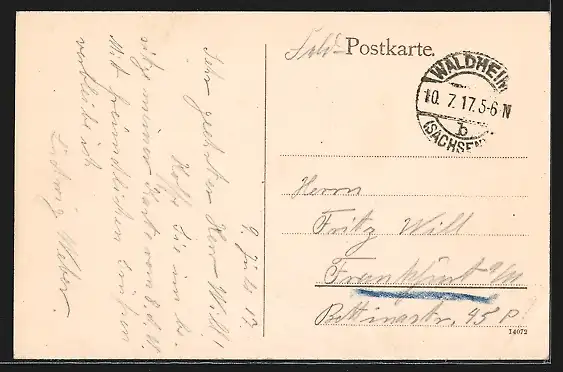 Feld-Postkarte.
WALDHEIM
10.7.17.5-6N
b
(SACHSEN)
Herrn
Fritz Will
Frankfurt a/M
Bettinastr. 45 P.
14072
9. Juli 17.
Sehr geehrter Herr Will!
Hoffe Sie im Be-
sitze meiner Karte vom 8. d. M.
Mit freundlichen Grüßen
verbleibe ich
Ludwig Weber.